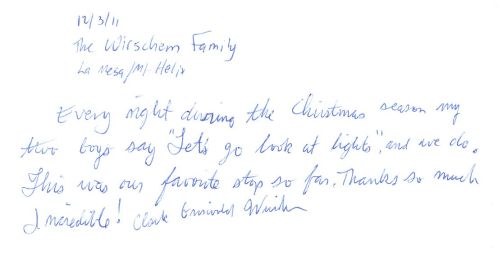 12/3/11
The Wirschem Family
La Mesa/Mt Helix
Every night during the Christmas season my
two boys say "Let's go look at lights", and we do.
This was our favorite stop so far. Thanks so much
Incredible! Clark Griswold